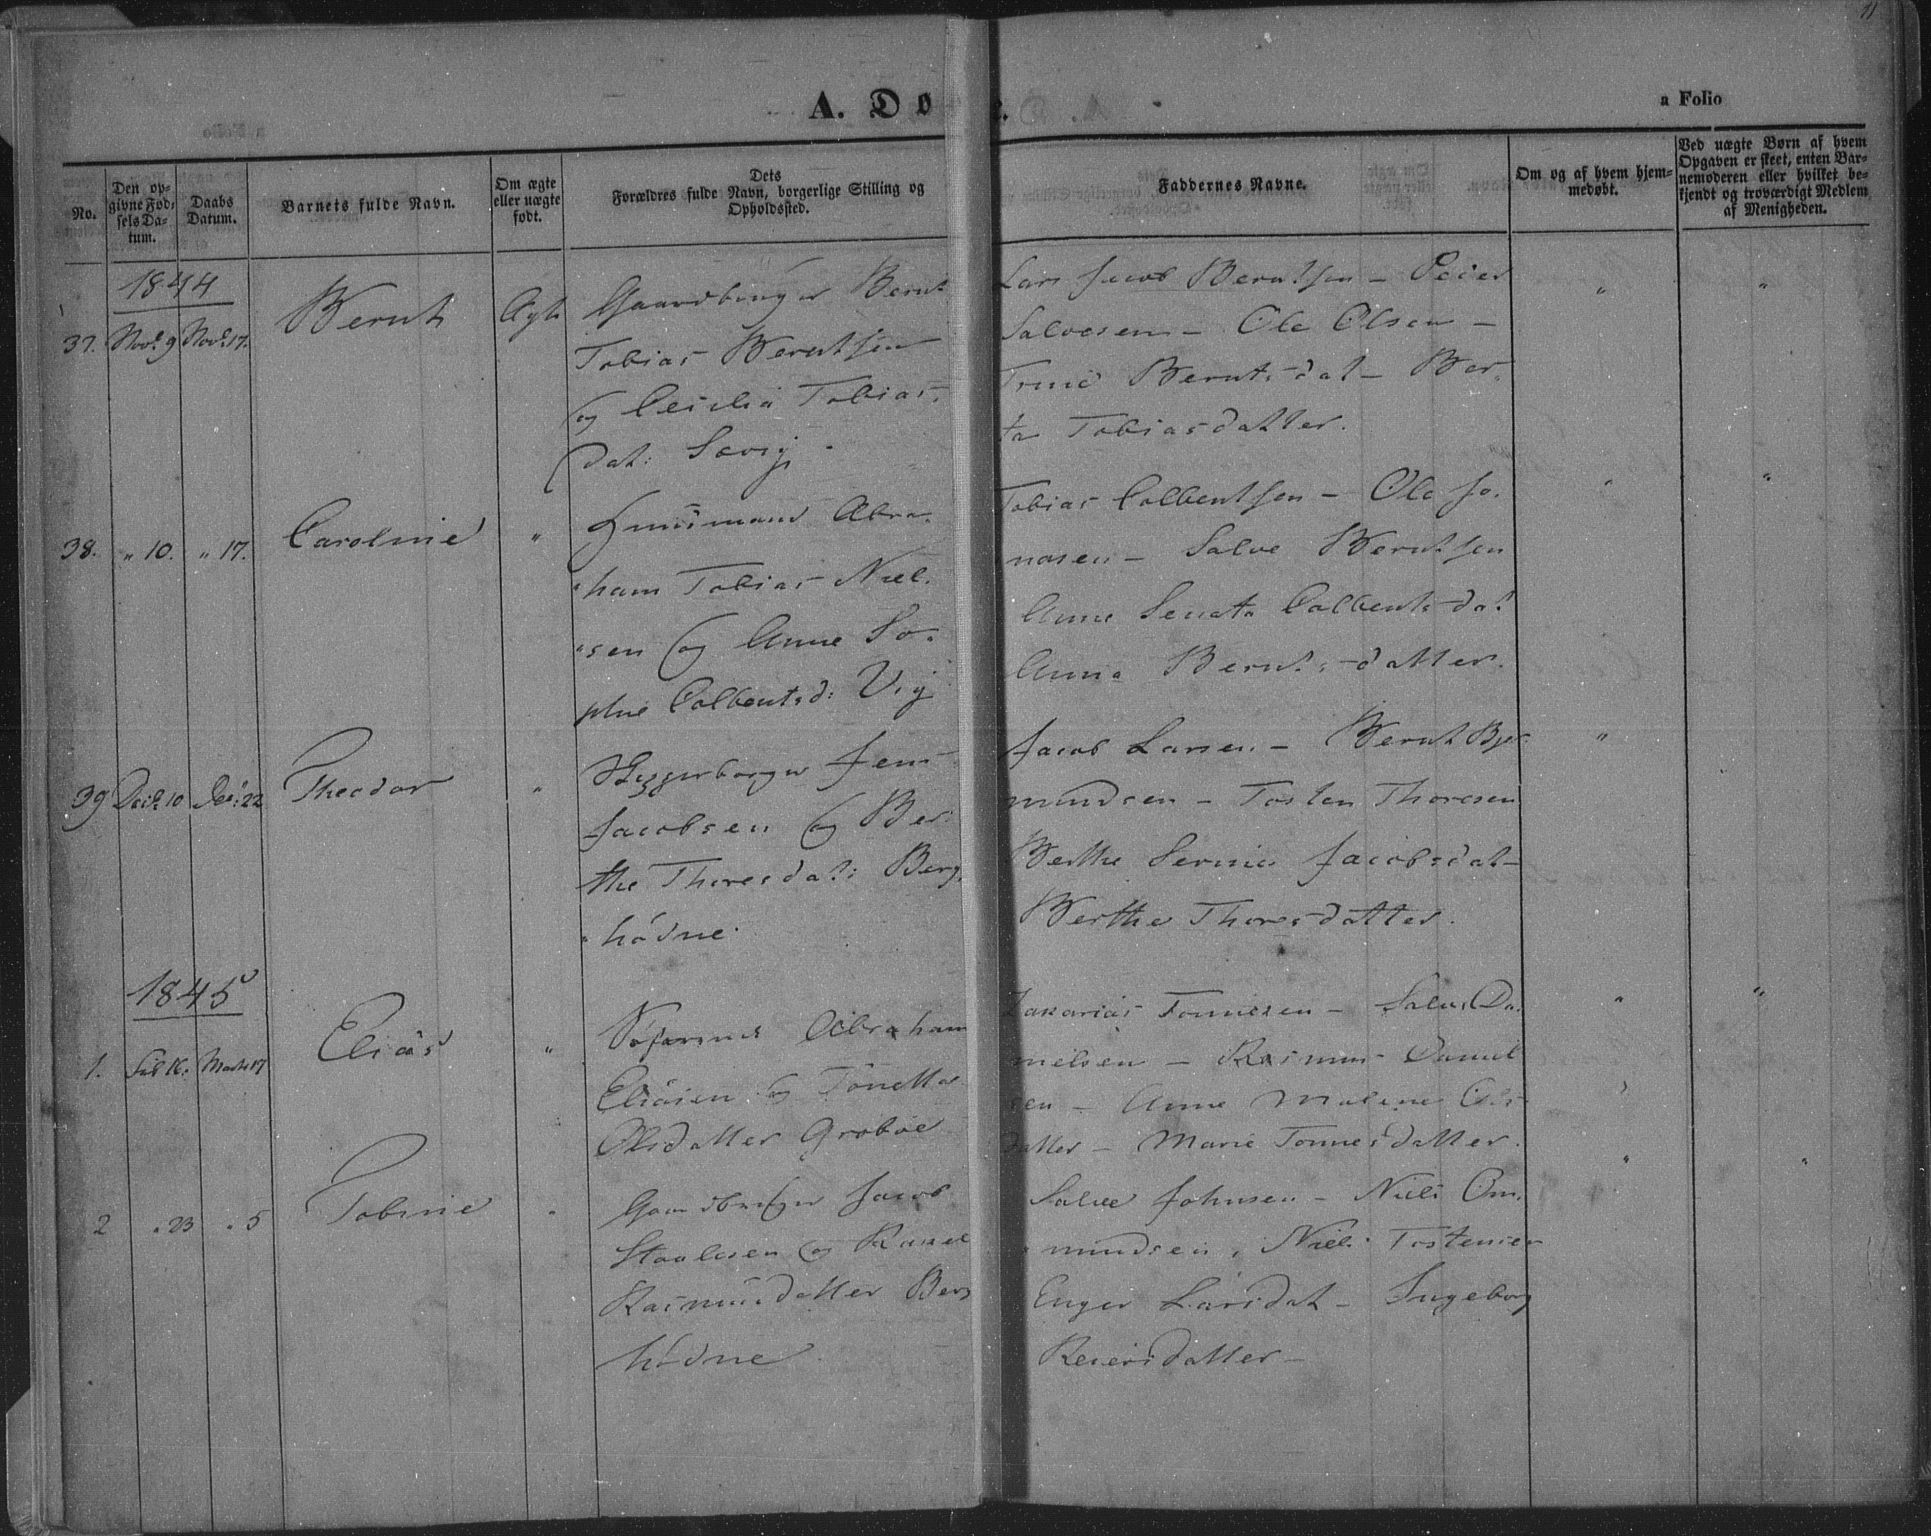 11
A. Dø
a Folio
No.
Den op-
givne Fød-
sels Da-
tum.
Daabs
Datum.
Barnets fulde Navn.
Om ægte
eller uægte
født.
Dets
Forældres fulde Navn, borgerlige Stilling og
Opholdssted.
Faddernes Navne.
Om og af hvem hjem-
medøbt.
Ved uægte Børn af hvem
Opgaven er skeet, enten Bar-
nemoderen eller hvilket be-
kjendt og troværdigt Medlem
af Menigheden.
1844
37. Novb 9 Novb 17. Bernt Ægte
Gaardbruger Bernt
Tobias Berntsen
og Cecilia Tobias-
dat: Sævig
Lars Jacob Berntsen - Peder
Salvesen - Ole Olsen -
Trine Berntsdat - Ber-
ta Tobiasdatter.
" "
38. " 10. " 17. Caroline "
Huusmand Abra-
ham Tobias Niel-
sen og Anne So-
phie Colbentsd: Vig
Tobias Colbentsen - Ole Jo-
nasen - Salve Berntsen
Anne Senata Colbentsdat
Anna Berntsdatter.
" "
39 Decb 10 Dec: 22 Theodor "
Jens
Jacobsen og Ber-
the Thoresdat: Berg-
hødne.
Jacob Larsen - Bernt
mundsen - Tosten Thoresen
Berthe Serine Jacobsdat-
Berthe Thoresdatter.
"
1845
1. Feb 16. Marts 17 Elias "
Søfarende Abraham
Eliasen og Tonette
Olsdatter Grøboe
Zakarias Tonnesen - Salve Da-
nielsen - Rasmus Daniel
sen - Anne Malene Ols-
datter - Marie Tonnesdatter.
" "
2 " 23 " 5 Tobine "
Gaardbruger Jacob
Staalesen og Rakel
Rasmusdatter Berg
hødne
Salve Johnsen - Niels Om-
mundsen, Niels Tostensen
Enger Larsdat - Ingeborg
Reiersdatter -
" "